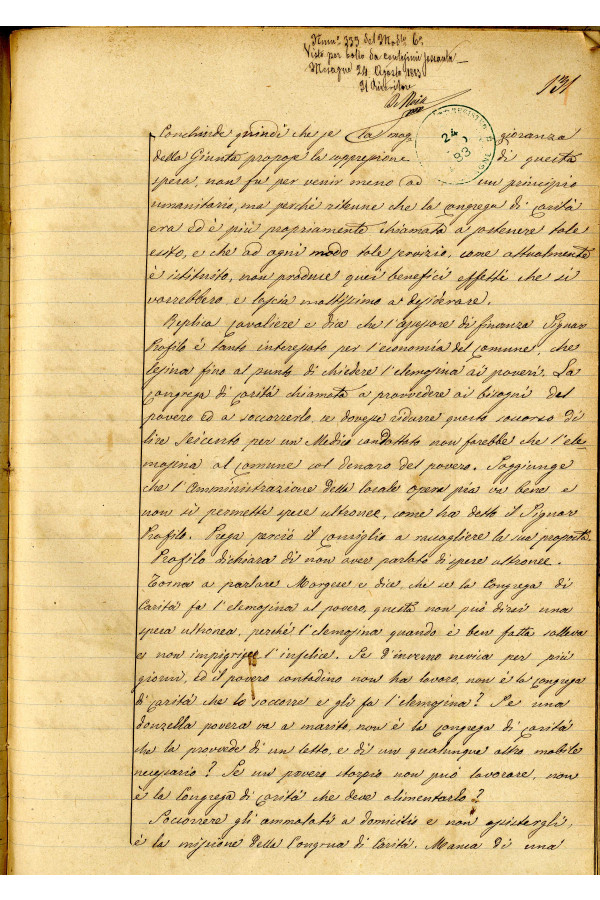 Num.º 333 del Mod.º 6º
Visto per bollo da centesimi sessanta
Mesagne 24 Agosto 1883
Il Ricevitore
131
24
83
Conchiude quindi che se la mag gioranza
della Giunta propose la soppressione di questa
spesa, non fu per venir meno ad un principio
umanitario, ma perché ritenne che la Congrega di Carità
era ed è più propriamente chiamata a sostenere tale
esito, e che ad ogni modo tale servizio, come attualmente
è istituito, non produce quei benefici effetti che si
vorrebbero, e lascia moltissimo a desiderare.
Replica Cavaliere e dice che l'assessore di finanza Signor
Profilo è tanto interessato per l'economia del Comune, che
lesina fino al punto di chiedere l'elemosina ai poveri. La
Congrega di Carità chiamata a provvedere ai bisogni del
povero ed a soccorrerlo, se dovesse ridurre questo soccorso di
lire Seicento per un Medico condottato non farebbe che l'ele-
mosina al Comune col denaro del povero. Soggiunge
che l'Amministrazione della locale opera pia va bene e
non si permette spese ultronee, come ha detto il Signor
Profilo. Prega perciò il Consiglio a raccogliere la sua proposta
Profilo dichiara di non aver parlato di spese ultronee.
Torna a parlare Margese e dice che se la Congrega di
Carità fa l'elemosina al povero, questa non può dirsi una
spesa ultronea, perché l'elemosina quando è ben fatta solleva
e non impigrisce l'infelice. Se d'inverno nevica per più
giorni, ed il povero contadino non ha lavoro, non è la Congrega
di Carità che lo soccorre e gli fa l'elemosina? Se una
donzella povera va a marito, non è la Congrega di Carità
che la provvede di un letto, e di un qualunque altro mobile
necessario? Se un povero storpio non può lavorare, non
è la Congrega di Carità che deve alimentarlo?
Soccorrere gli ammalati a domicilio e non assistergli,
è la missione della Congrua di Carità. Manca di una